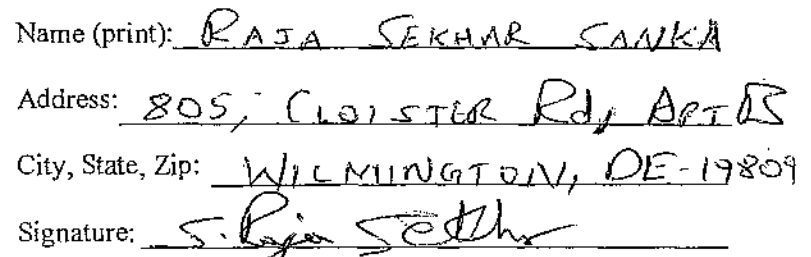 Name (print): RAJA SEKHAR SANKA
Address: 805, CLOISTER Rd, APT B
City, State, Zip: WILMINGTON, DE-19809
Signature: S. Raja Sekhr